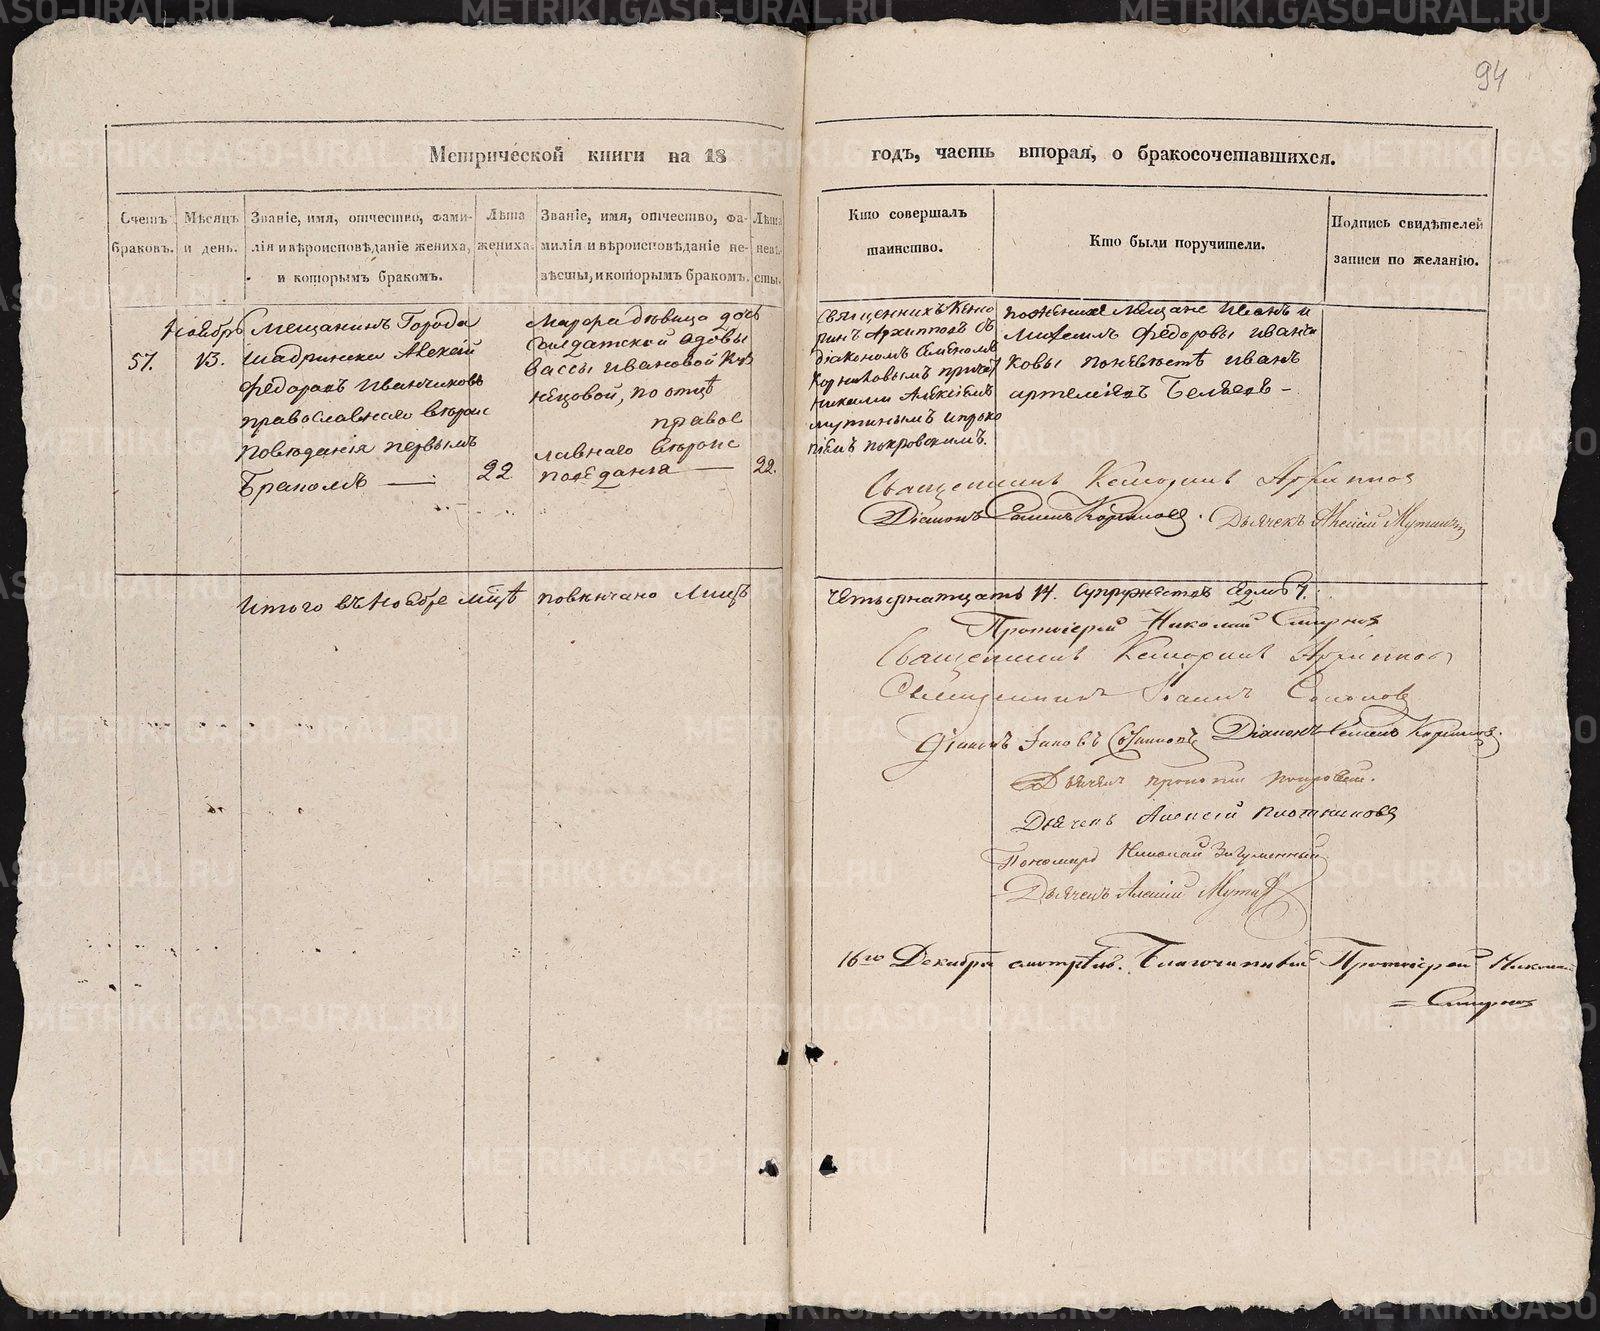 94
Метрической книги на 18
годъ, часть вторая, о бракосочетавшихся.
Счетъ браковъ.
Мѣсяцъ и день.
Званіе, имя, отчество, фами-
лія и вѣроисповѣданіе жениха,
и которымъ бракомъ.
Лѣта жениха.
Званіе, имя, отчество, фа-
милія и вѣроисповѣданіе не-
вѣсты, и которымъ бракомъ.
Лѣта невѣ-
сты.
Кто совершалъ
таинство.
Кто были поручители.
Подпись свидѣтелей
записи по желанію.
57.
Ноябрь
13.
Мещанинъ Города
Шадринска Алексѣй
Федоровъ Иванчиковъ
православнаго вѣроис
поведанія первымъ
Бракомъ
22
дѣвица дочь
Солдатской вдовы
Вассы Ивановой Куз
нѣцовой, по отцѣ
правос
лавнаго вѣроис
поведанія
22.
Священникъ Кено
ринъ Архиповъ съ
діакономъ Семеномъ
Корниловымъ причет
никами Алексіемъ
Мутинымъ и проко
піемъ покровскимъ.
по женихѣ Мещане Иванъ и
Федоровы Иванчи
ковы по невѣстѣ Иванъ
артемьевъ Беляевъ
Священникъ Архиповъ
Діаконъ Семенъ Корниловъ. Дьячекъ Алексій Мутинъ
Итого въ Ноябре мцѣ повѣнчано Лицъ
четырнатцать 14. Супружествъ Седмь 7.
Протоіерей Николай Смирновъ
Священникъ Архиповъ
Священникъ Іоаннъ
Діаконъ Іаковъ Діаконъ Семенъ Корниловъ.
Дьячекъ прокопій покровскій.
Дьячекъ Алексій Плотниковъ
Пономарь Николай
Дьячекъ Алексій Мутинъ
16го Декабря смотрѣлъ. Благочинный Протоіерей Николай
= Смирновъ
METRIKI.GASO-URAL.RU